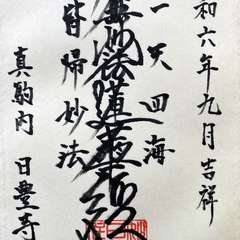 和六年九月吉祥
一天四海
無妙法蓮華経
皆帰妙法
真駒内 日豊寺